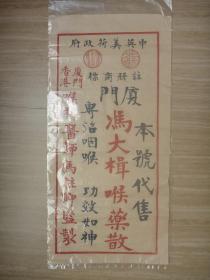 中英美荷政府
註冊商標
本號代售
廈門
馮大楫喉藥散
專治咽喉 功效如神
廈門
香港
醫師馮
監製